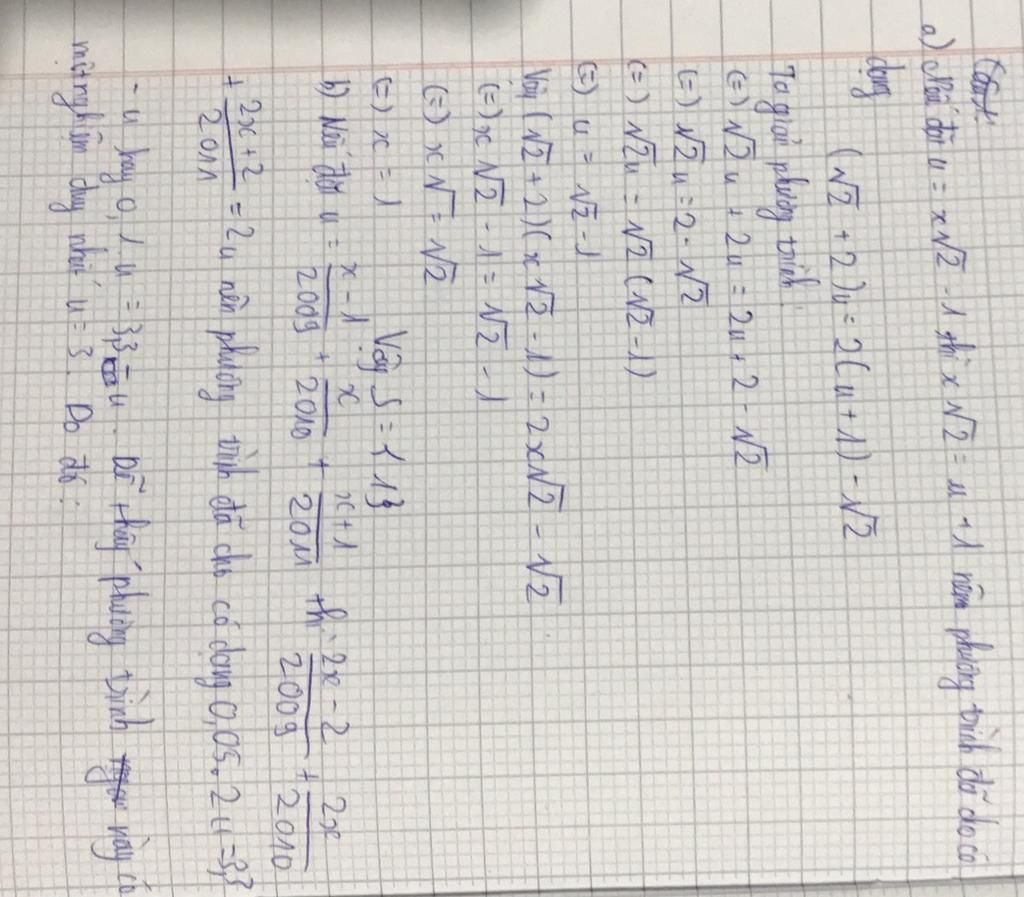 a) Nếu đặt u = x√2 - 1 thì x√2 = u + 1 nên phương trình đã do có
dạng
(√2 + 2)u = 2(u + 1) - √2
Ta giải phương trình
(=) √2u + 2u = 2u + 2 - √2
(=) √2u = 2 - √2
(=) √2u = √2(√2 - 1)
(=) u = √2 - 1
Vậy (√2 + 2)(x√2 - 1) = 2x√2 - √2
(=) x√2 - 1 = √2 - 1
(=) x√ = √2
(=) x = 1 Vậy S = {1}
b) Nếu đặt u = (x - 1)/2009 + x/2010 + (x + 1)/2011 thì (2x - 2)/2009 + 2x/2010
+ (2x + 2)/2011 = 2u nên phương trình đã cho có dạng 0,05.2u = 3,3
- u hay 0,1u = 3,3 - u. Dễ thấy phương trình này có
một nghiệm duy nhất u = 3. Do đó: